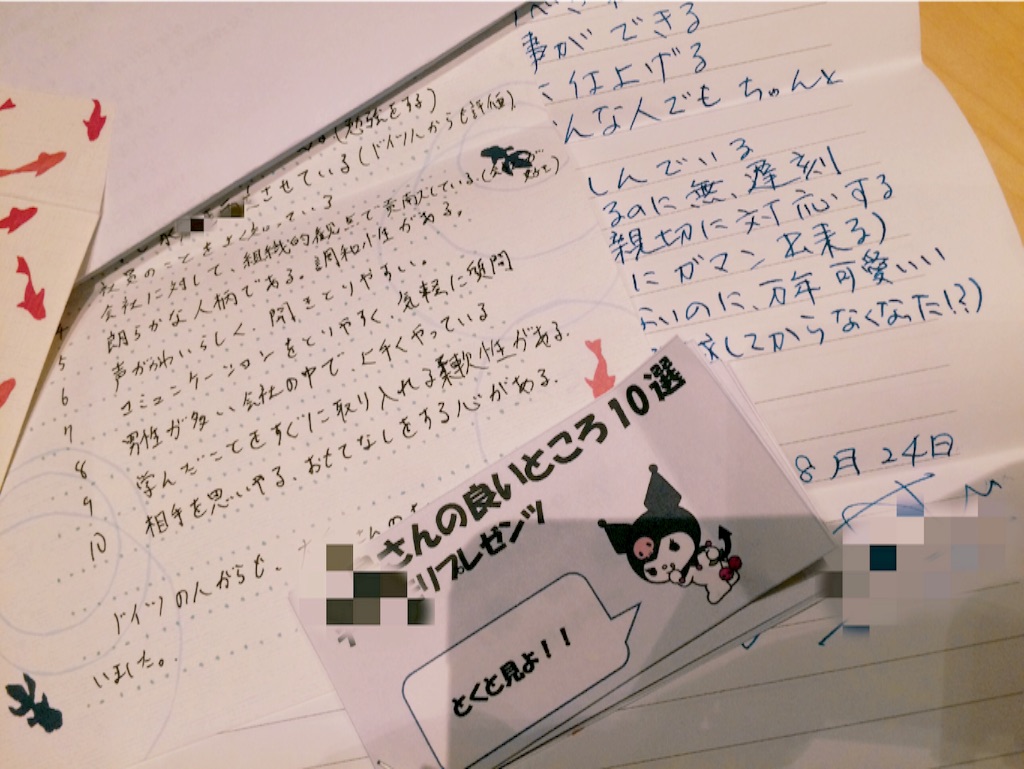 (勉強をする)
させている(ドイツ人からも評価)
社員のことをよく
会社に対して、組織的観点で意固としている。
朗らかな人柄である。調和性がある。
5 声がかわいらしく、聞きとりやすい。
6 コミュニケーションをとりやすく、気軽に質問
7 男性が多い会社の中で上手くやっている
8 学んだことをすぐに取り入れる柔軟性がある.
9 相手を思いやる、おもてなしをする心がある.
10
ドイツの人からも、
いました。
事ができる
仕上げる
んな人でもちゃんと
しんでいる
るのに無遅刻
親切に対応する
にガマン出来る)
のに、万年可愛いい
してからなくなった!?)
8月24日
さんの良いところ10選
リプレゼンツ
とくと見よ!!